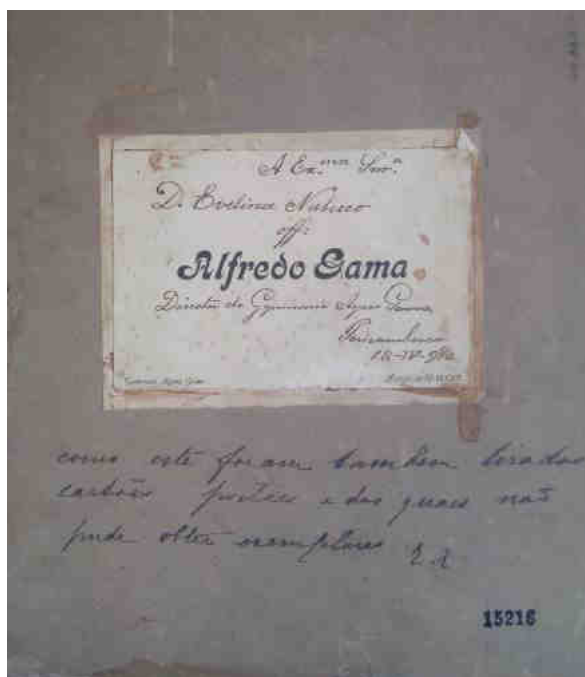 A Ex.ma Snr.a
D. Evelina Nabuco
off:
Alfredo Gama
Director do Gymnasio Ayres Gama
Pernambuco
18-IV-910
como este foram tambem tirados
cartões postaes e dos quaes não
pude obter exemplares
15216